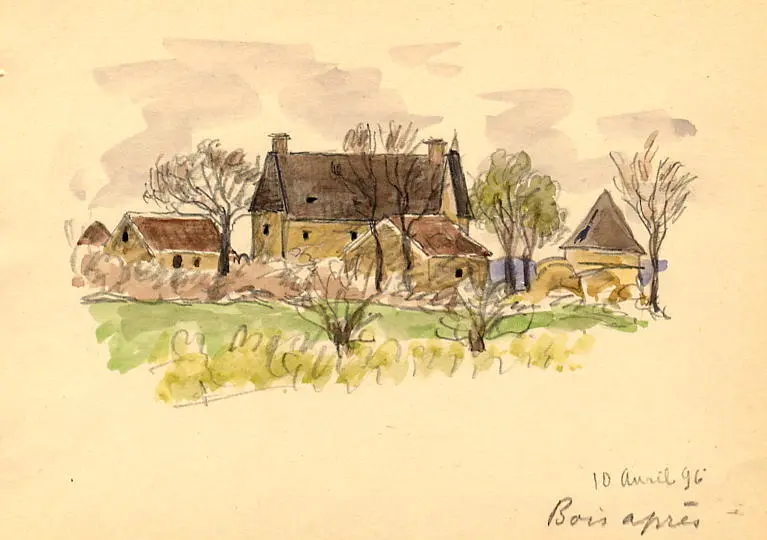 10 Avril 96
Bois après